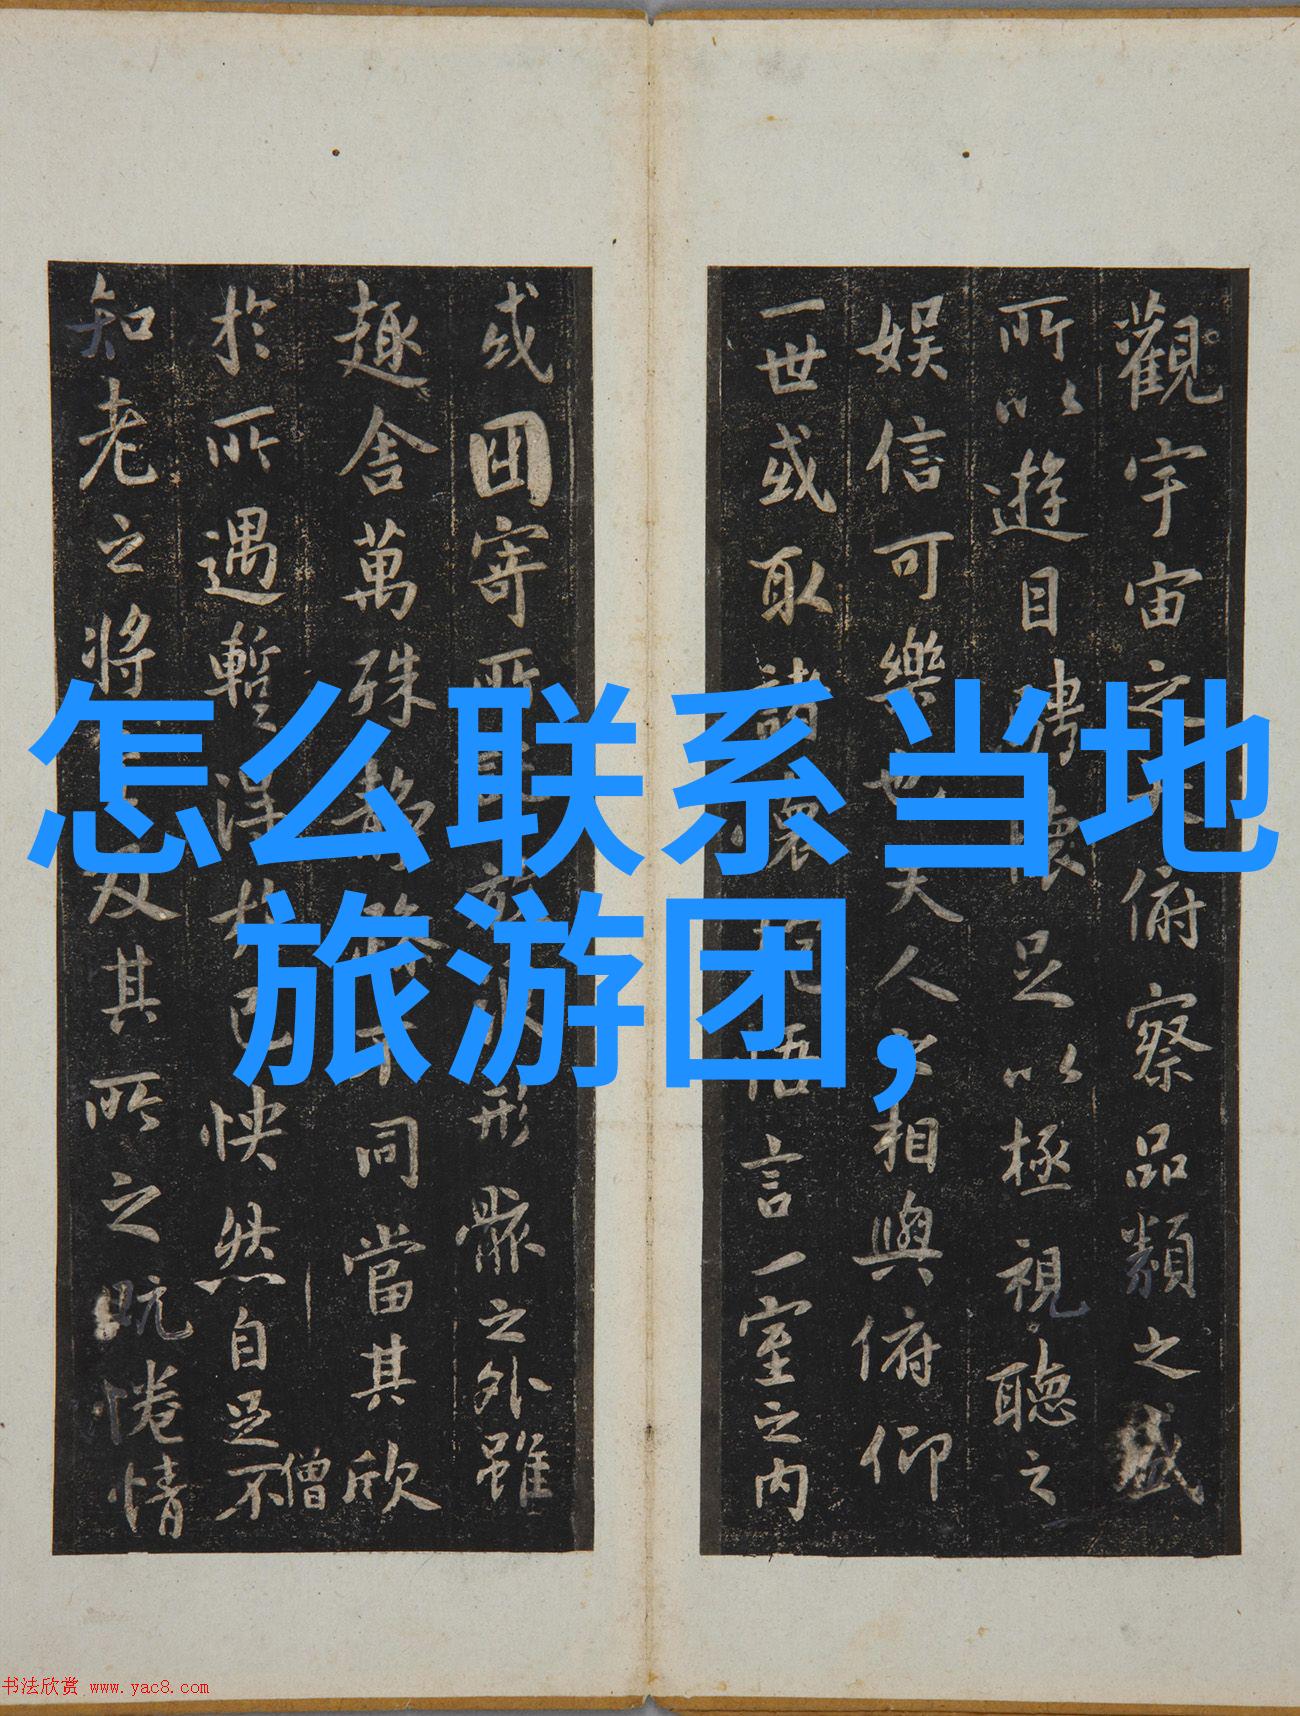 觀宇宙之大俯察品類之盛
所以遊目騁懷足以極視聽之
娱信可樂也夫人之相與俯仰
一世或取諸懷抱悟言一室之内
或因寄所託放浪形骸之外雖
趣舎萬殊静躁不同當其欣
於所遇暫得於己怏然自足不
僧
知老之將至及其所之既惓情
怎么联系当地
旅游团，
书法欣赏 www.yac8.com